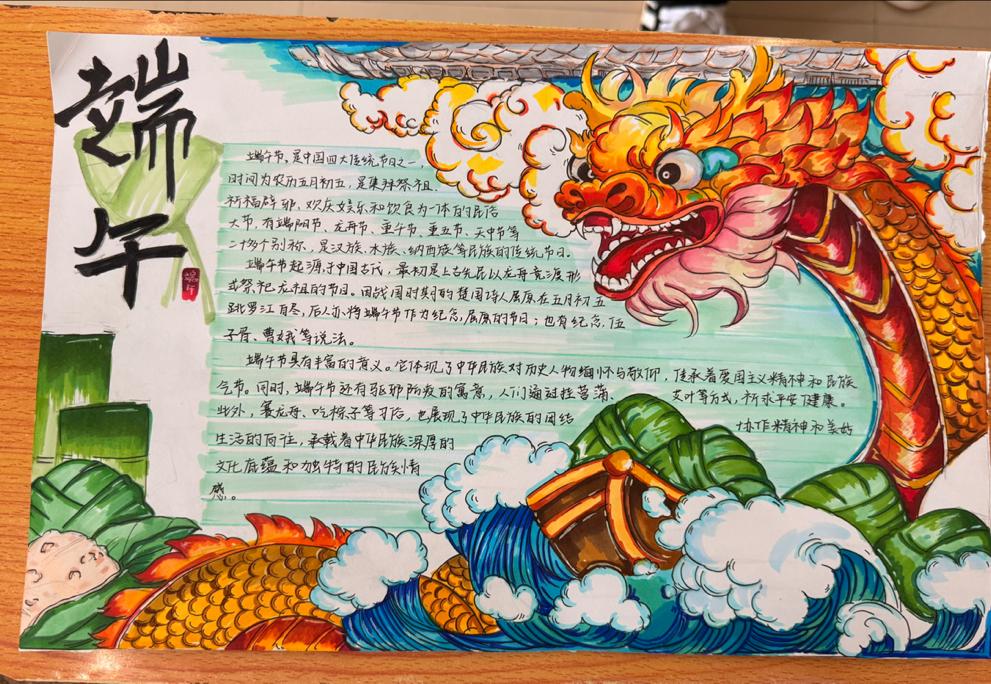 端午
端午
端午节，是中国四大传统节日之一，
时间为农历五月初五，是集拜祭祖、
祈福辟邪、欢庆娱乐和饮食为一体的民俗
大节，有端阳节、龙舟节、重午节、重五节、天中节等
二十多个别称，是汉族、水族、纳西族等民族的传统节日。
端午节起源于中国古代，最初是上古先民以龙舟竞渡形
式祭祀龙祖的节日。因战国时期的楚国诗人屈原在五月初五
跳罗江自尽，后人亦将端午节作为纪念屈原的节日；也有纪念伍
子胥、曹娥等说法。
端午节具有丰富的意义。它体现了中华民族对历史人物缅怀与敬仰，传承着爱国主义精神和民族
气节。同时，端午节还有驱邪防疫的寓意，人们通过挂菖蒲、艾叶等方式，祈求平安健康。
此外，赛龙舟、吃粽子等习俗，也展现了中华民族的团结协作精神和美好
生活的向往，承载着中华民族深厚的
文化底蕴和独特的民族情
感。